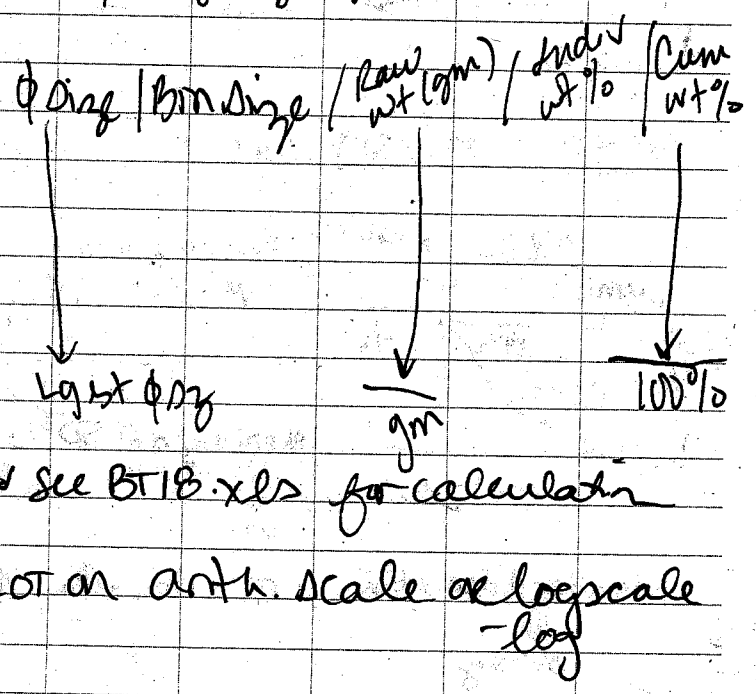 ϕ Size | Bin Size / Raw wt (gm) / Indiv wt % / Cum wt %
Lgst ϕ Sz
gm
100%
see BT18.xls for calculatin
OT on arith. scale or logscale
-log